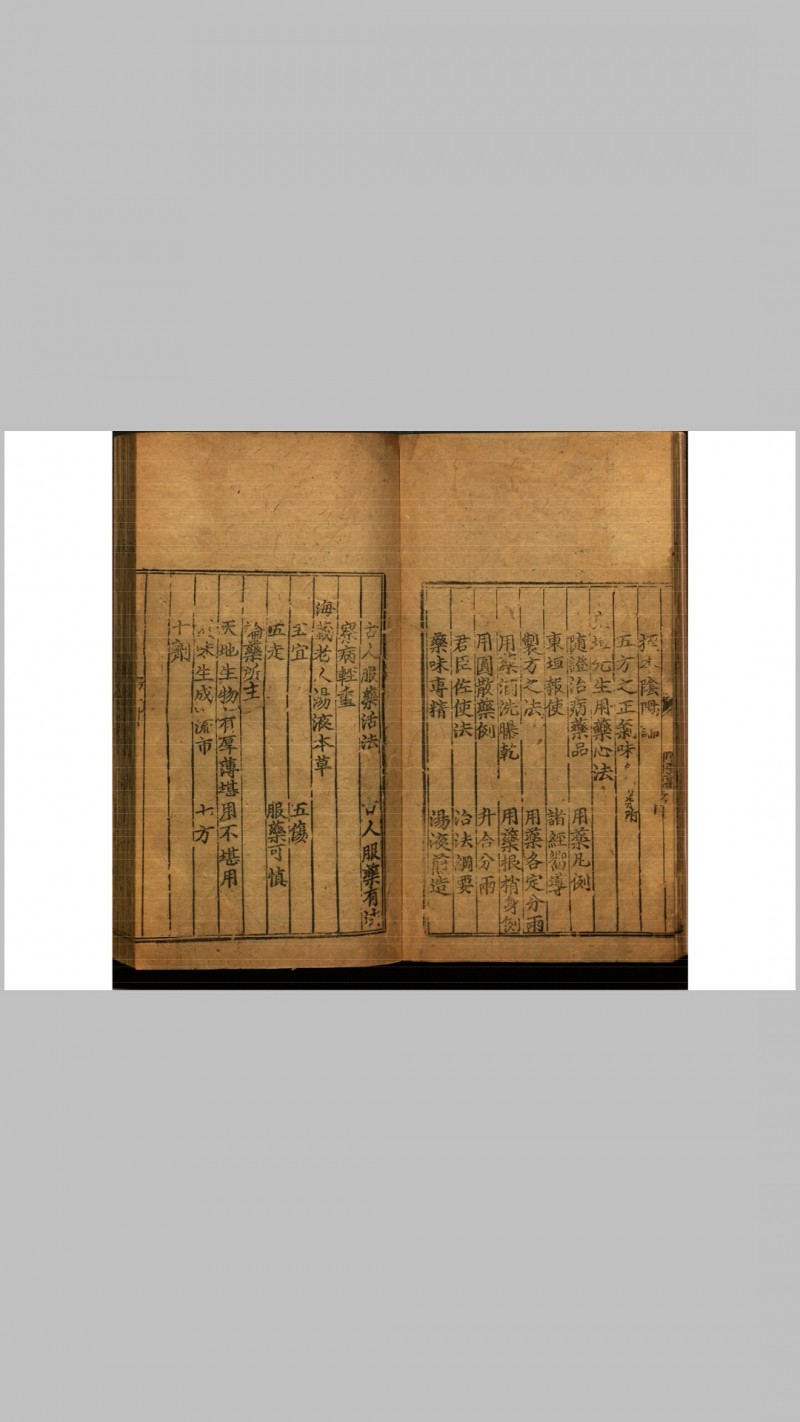 五方之正氣味
東垣先生用藥心法
隨證治病藥品 用藥凡例
東垣報使 諸經嚮導
製方之法 用藥各定分兩
用藥酒洗曝乾 用藥根梢身例
用圓散藥例 升合分兩
君臣佐使法 治法綱要
藥味專精 湯液煎造
古人服藥活法 古人服藥有法
察病輕重
海藏老人湯液本草
五宜 五傷
五走 服藥可慎
論藥所主
天地生物有厚薄堪用不堪用
氣味生成流布 七方
十劑